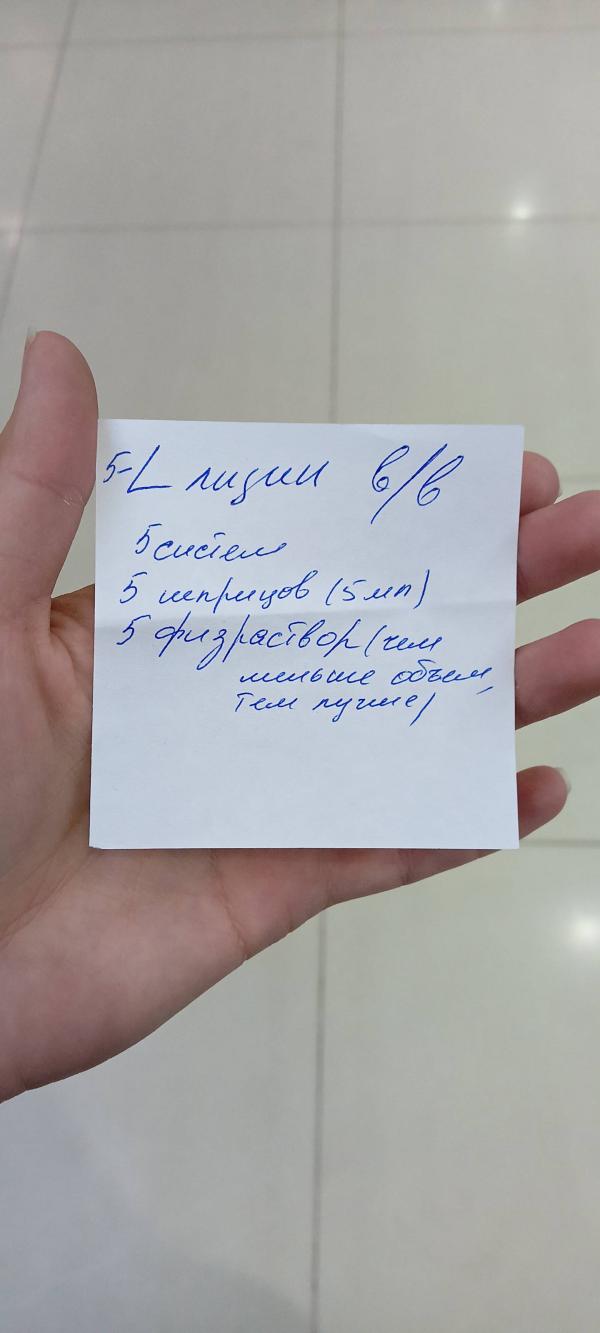 5-L лизин в/в
5 систем
5 шприцов (5 мл)
5 физраствор (чем
меньше объем,
тем лучше)